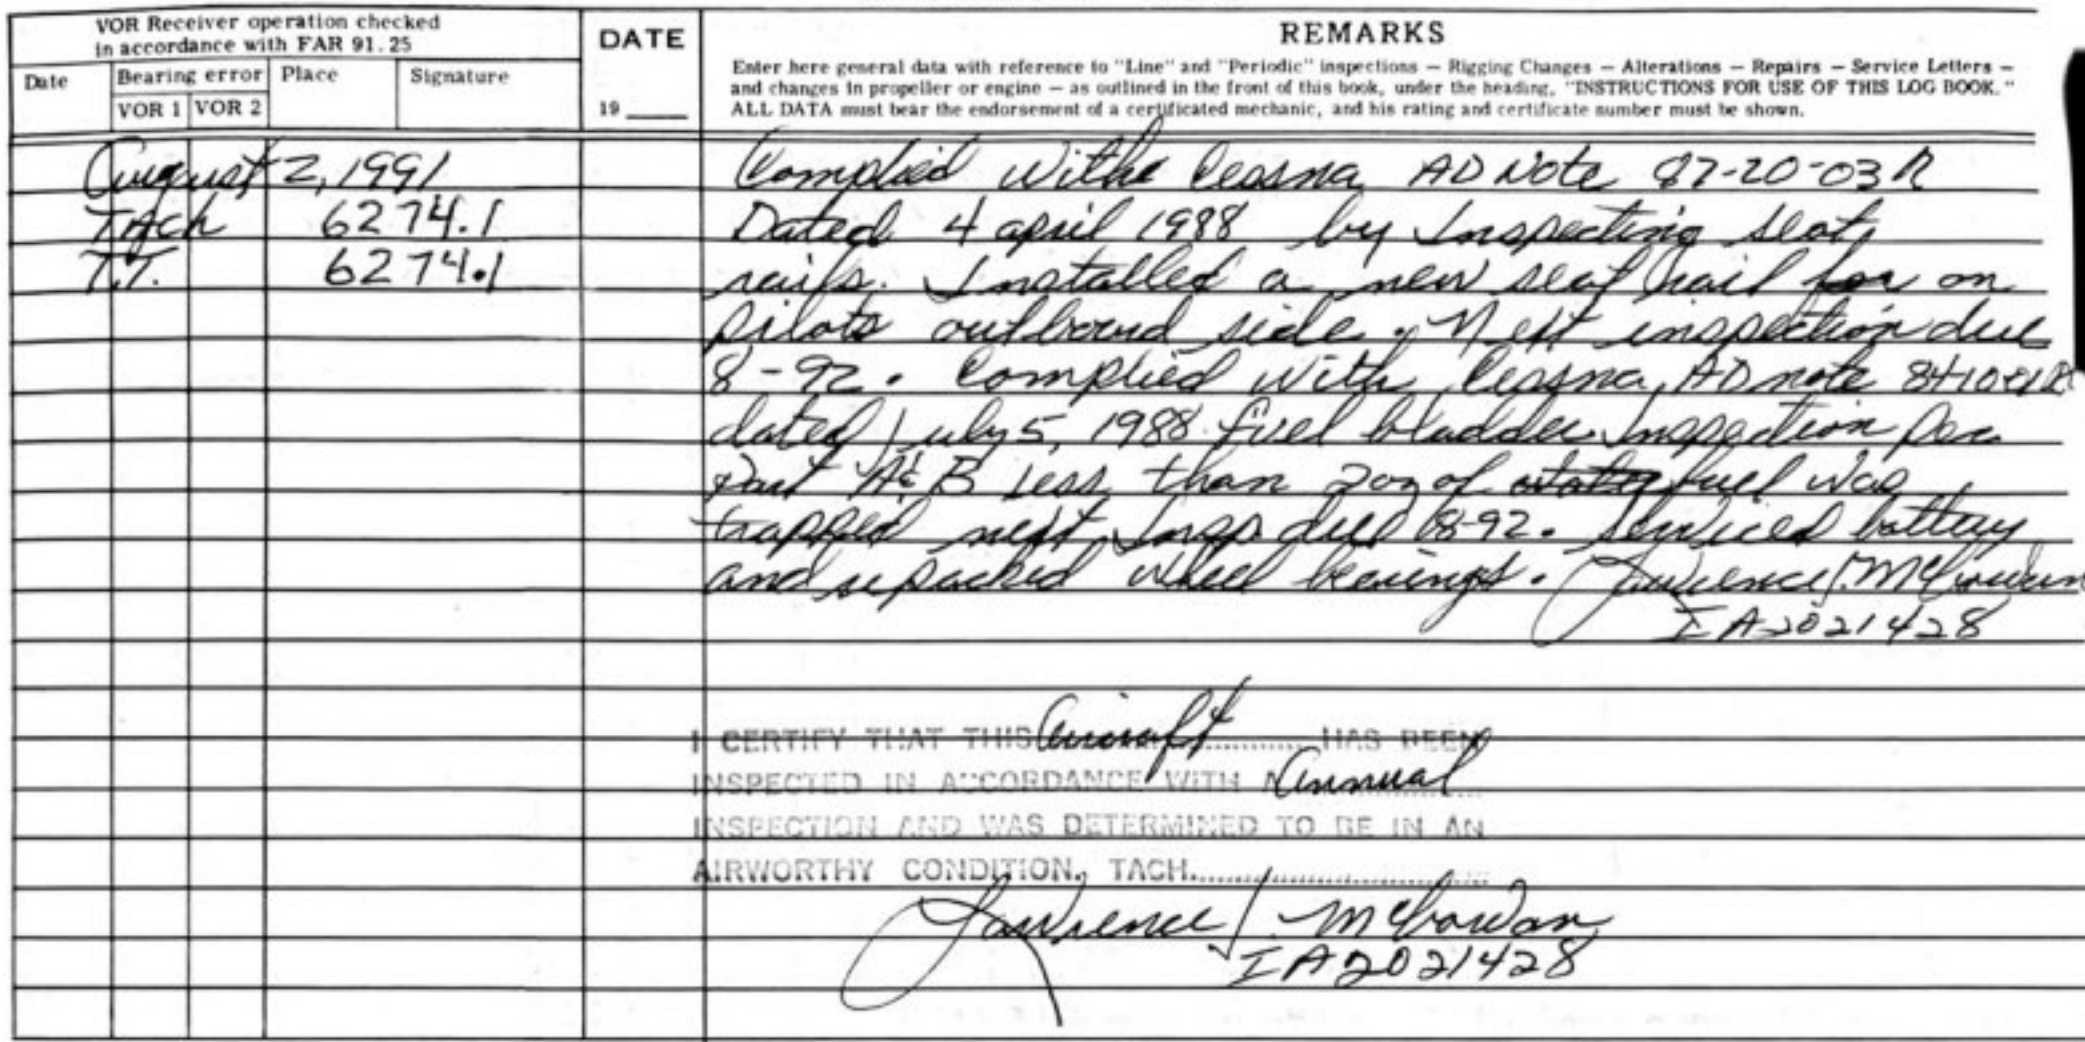 VOR Receiver operation checked
in accordance with FAR 91.25
Date
Bearing error
VOR 1 VOR 2
Place
Signature
DATE
19
REMARKS
Enter here general data with reference to "Line" and "Periodic" inspections — Rigging Changes — Alterations — Repairs — Service Letters —
and changes in propeller or engine — as outlined in the front of this book, under the heading, "INSTRUCTIONS FOR USE OF THIS LOG BOOK."
ALL DATA must bear the endorsement of a certificated mechanic, and his rating and certificate number must be shown.
August 2, 1991
TAch 6274.1
T.T. 6274.1
Complied with Cessna AD Note 87-20-03R
Dated 4 april 1988 by Inspecting seat
rails. Installed a new seat rail on
pilots outbound side. Next inspection due
8-92. Complied with Cessna AD note
dated July 5, 1988 fuel bladder Inspection per
Part A & B Less than 2oz of fuel was
trapped next Insp. due 8-92. Serviced battery
and repacked wheel bearings. Lawrence J. McGowan
IA2021428
I CERTIFY THAT THIS aircraft HAS BEEN
INSPECTED IN ACCORDANCE WITH Annual
INSPECTION AND WAS DETERMINED TO BE IN AN
AIRWORTHY CONDITION. TACH
Lawrence J. McGowan
IA2021428